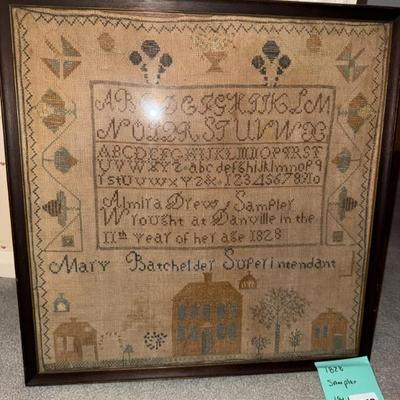 ABCDEFGHIJKLM
NOPQRSTUVWX
ABCDEFGHIJKLMNOPQRST
UVWXYZ abcdefghijklmnopq
rstuvwxyz& 12345678910
Almira Drews Sampler
Wrought at Danville in the
11th year of her age 1828
Mary Batchelder Superintendant
1828
Sampler